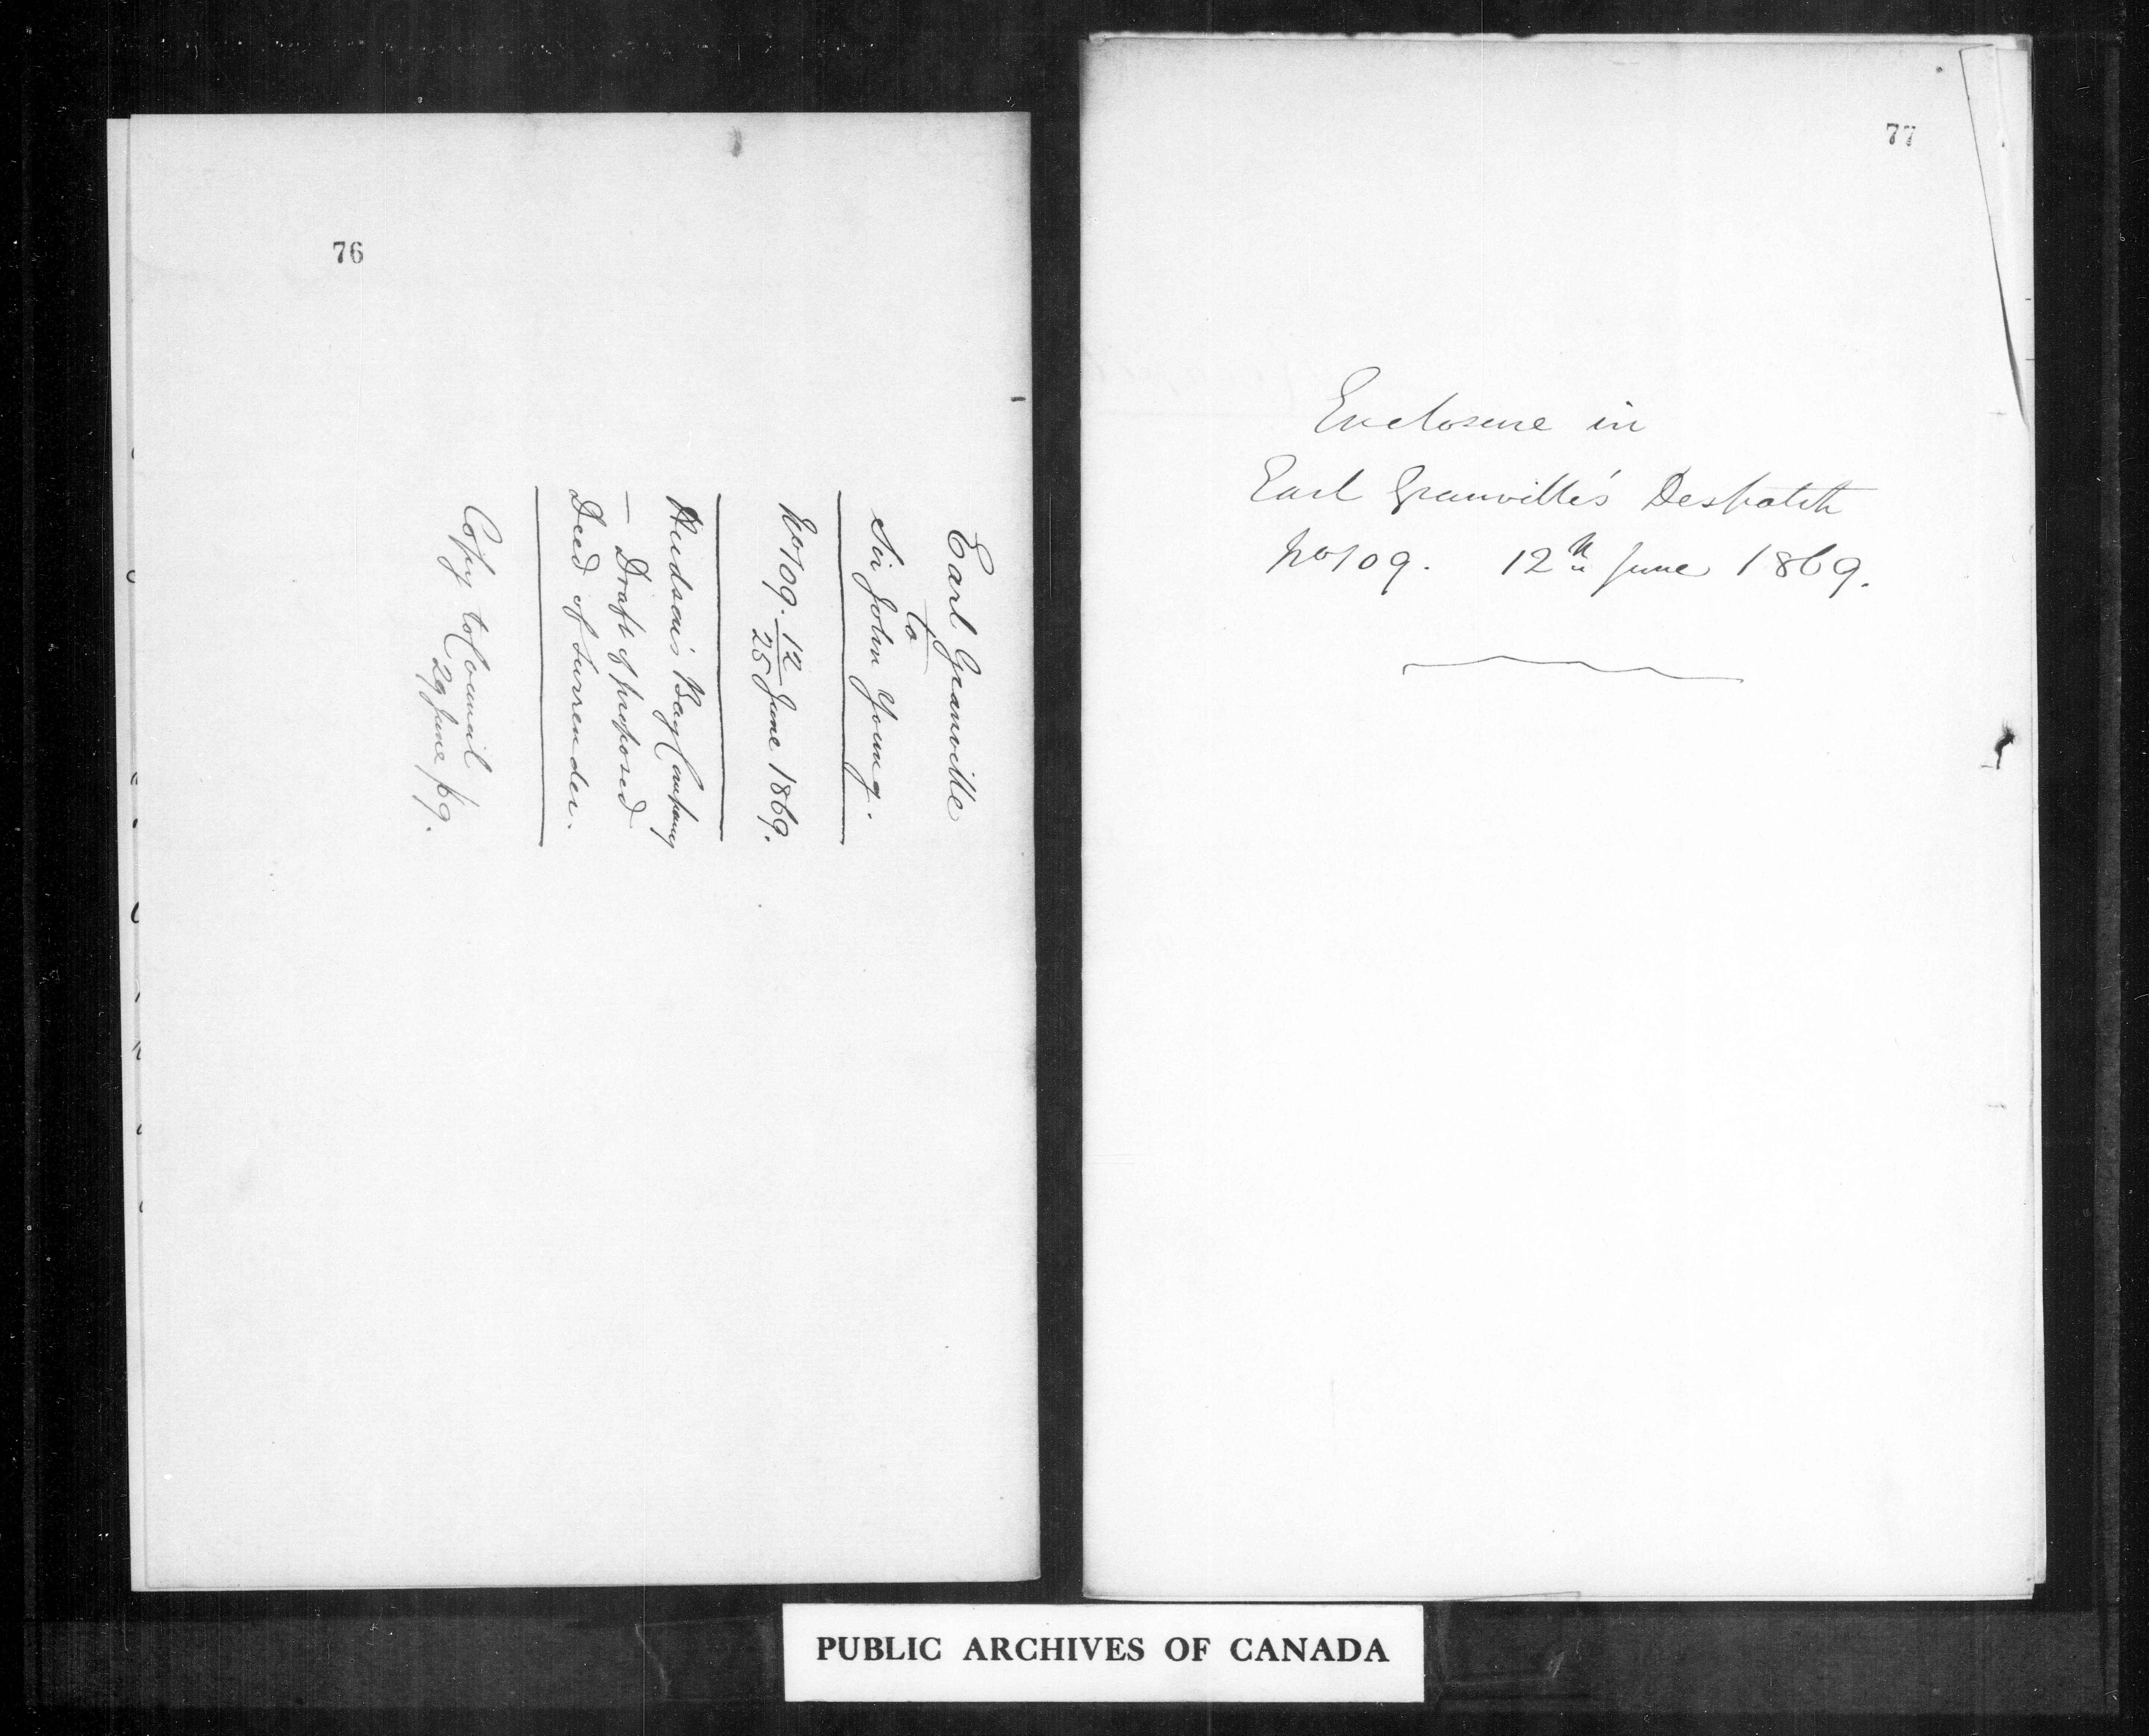 76
Earl Granville
to
Sir John Young.
No 109. 12/25 June 1869.
Hudson's Bay Company
— Draft of proposed
Deed of Surrender.
Copy to Council
29 June /69.
77
Enclosure in
Earl Granville's Despatch
No 109. 12th June 1869.
PUBLIC ARCHIVES OF CANADA